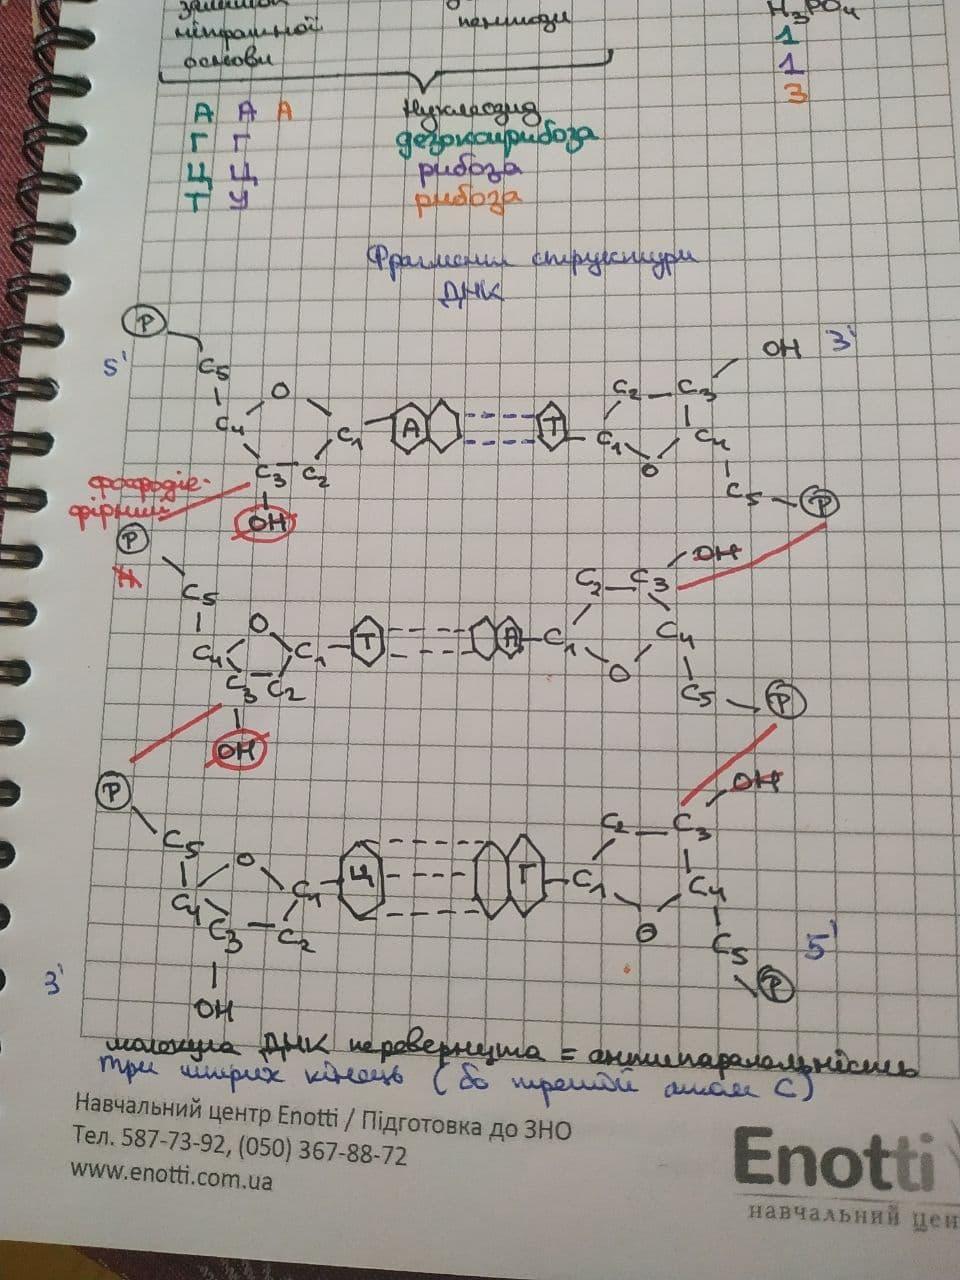 залишок
нітратної
основи
пентози
H₃PO₄
1
1
3
А А А
Г Г
Ц Ц
Т У
Нуклеозид
дезоксирибоза
рибоза
рибоза
Фрагмент структури
ДНК
P
5'
C5
O
C4
C1
C3
C2
OH
А
Т
C2
C3
OH 3'
C1
C4
O
C5
P
фосфодіе-
фірний
P
C5
O
C4
C1
C3
C2
OH
Т
А
C2
C3
OH
C1
C4
O
C5
P
P
C5
O
C4
C1
C3
C2
OH
3'
Ц
Г
C2
C3
OH
C1
C4
O
C5
5'
P
молекула ДНК перевернута = антипаралельність
три штрих кінець (бо третій атом С)
Навчальний центр Enotti / Підготовка до ЗНО
Тел. 587-73-92, (050) 367-88-72
www.enotti.com.ua
Enotti
навчальний цен